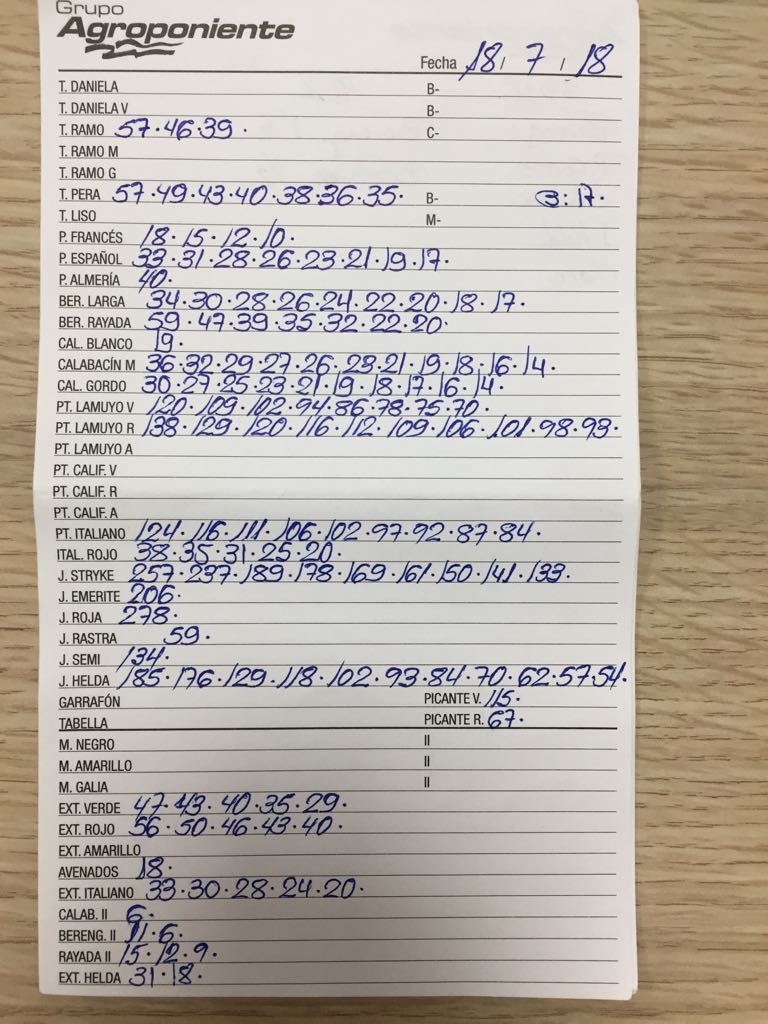 Grupo
Agroponiente
Fecha 18 / 7 / 18
T. DANIELA B-
T. DANIELA V B-
T. RAMO 57·46·39· C-
T. RAMO M
T. RAMO G
T. PERA 57·49·43·40·38·36·35· B- B:17·
T. LISO M-
P. FRANCÉS 18·15·12·10·
P. ESPAÑOL 33·31·28·26·23·21·19·17·
P. ALMERÍA 40·
BER. LARGA 34·30·28·26·24·22·20·18·17·
BER. RAYADA 59·47·39·35·32·22·20·
CAL. BLANCO 19·
CALABACÍN M 36·32·29·27·26·23·21·19·18·16·14·
CAL. GORDO 30·27·25·23·21·19·18·17·16·14·
PT. LAMUYO V 120·109·102·94·86·78·75·70·
PT. LAMUYO R 138·129·120·116·112·109·106·101·98·93·
PT. LAMUYO A
PT. CALIF. V
PT. CALIF. R
PT. CALIF. A
PT. ITALIANO 124·116·111·106·102·97·92·87·84·
ITAL. ROJO 38·35·31·25·20·
J. STRYKE 257·237·189·178·169·161·150·141·133·
J. EMERITE 206·
J. ROJA 278·
J. RASTRA 59·
J. SEMI 134·
J. HELDA 185·176·129·118·102·93·84·70·62·57·54·
GARRAFÓN PICANTE V. 115·
TABELLA PICANTE R. 67·
M. NEGRO II
M. AMARILLO II
M. GALIA II
EXT. VERDE 47·43·40·35·29·
EXT. ROJO 56·50·46·43·40·
EXT. AMARILLO
AVENADOS 18·
EXT. ITALIANO 33·30·28·24·20·
CALAB. II 6·
BERENG. II 11·6·
RAYADA II 15·12·9·
EXT. HELDA 31·18·